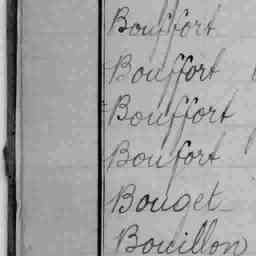 Bouffort
Bouffort
Bouffort
Boufort
Bouget
Bouillon